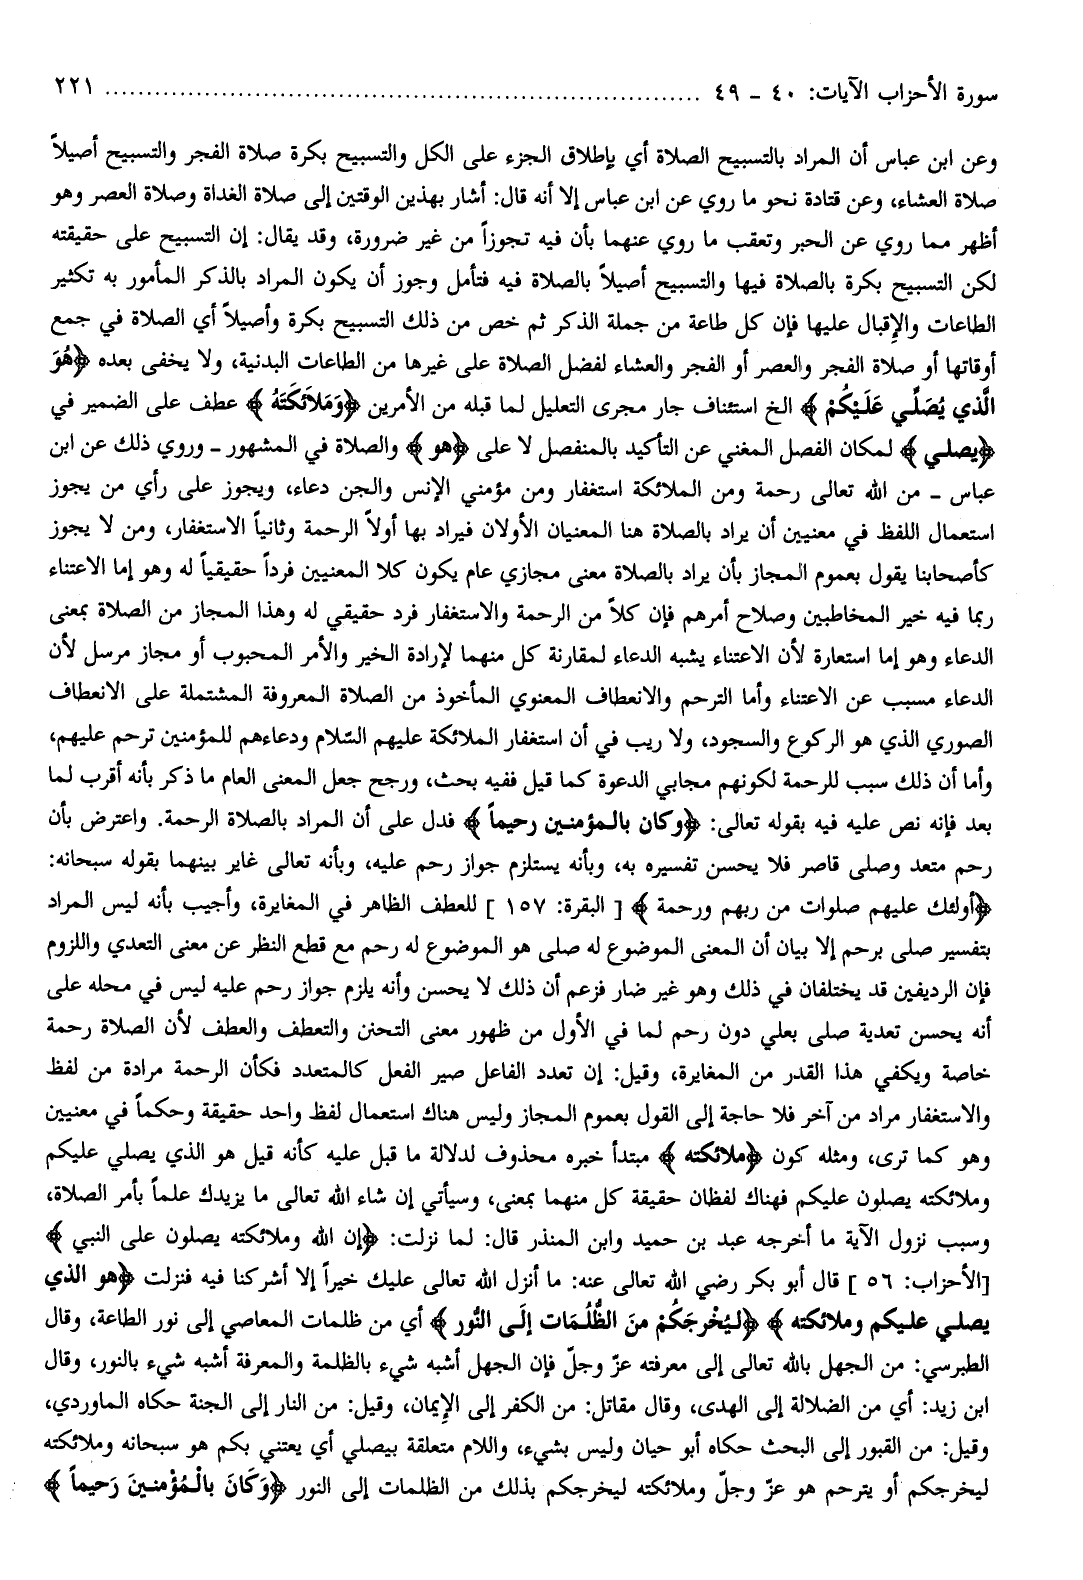 سورة الأحزاب الآيات: ٤٠ ـ ٤٩ ........................................................................ ٢٢١
وعن ابن عباس أن المراد بالتسبيح الصلاة أي بإطلاق الجزء على الكل والتسبيح بكرة صلاة الفجر والتسبيح أصيلاً
صلاة العشاء، وعن قتادة نحو ما روي عن ابن عباس إلا أنه قال: أشار بهذين الوقتين إلى صلاة الغداة وصلاة العصر وهو
أظهر مما روي عن الحبر وتعقب ما روي عنهما بأن فيه تجوزاً من غير ضرورة، وقد يقال: إن التسبيح على حقيقته
لكن التسبيح بكرة بالصلاة فيها والتسبيح أصيلاً بالصلاة فيه فتأمل وجوز أن يكون المراد بالذكر المأمور به تكثير
الطاعات والإقبال عليها فإن كل طاعة من جملة الذكر ثم خص من ذلك التسبيح بكرة وأصيلاً أي الصلاة في جمع
أوقاتها أو صلاة الفجر والعصر أو الفجر والعشاء لفضل الصلاة على غيرها من الطاعات البدنية، ولا يخفى بعده ﴿هُوَ
الَّذي يُصَلِّي عَلَيْكُمْ﴾ الخ استئناف جار مجرى التعليل لما قبله من الأمرين ﴿وَمَلاَئكَتَهُ﴾ عطف على الضمير في
﴿يصلي﴾ لمكان الفصل المغني عن التأكيد بالمنفصل لا على ﴿هو﴾ والصلاة في المشهور ـ وروي ذلك عن ابن
عباس ـ من الله تعالى رحمة ومن الملائكة استغفار ومن مؤمني الإنس والجن دعاء، ويجوز على رأي من يجوز
استعمال اللفظ في معنيين أن يراد بالصلاة هنا المعنيان الأولان فيراد بها أولاً الرحمة وثانياً الاستغفار، ومن لا يجوز
كأصحابنا يقول بعموم المجاز بأن يراد بالصلاة معنى مجازي عام يكون كلا المعنيين فرداً حقيقياً له وهو إما الاعتناء
ربما فيه خير المخاطبين وصلاح أمرهم فإن كلاً من الرحمة والاستغفار فرد حقيقي له وهذا المجاز من الصلاة بمعنى
الدعاء وهو إما استعارة لأن الاعتناء يشبه الدعاء لمقارنة كل منهما لإرادة الخير والأمر المحبوب أو مجاز مرسل لأن
الدعاء مسبب عن الاعتناء وأما الترحم والانعطاف المعنوي المأخوذ من الصلاة المعروفة المشتملة على الانعطاف
الصوري الذي هو الركوع والسجود، ولا ريب في أن استغفار الملائكة عليهم السّلام ودعاءهم للمؤمنين ترحم عليهم،
وأما أن ذلك سبب للرحمة لكونهم مجابي الدعوة كما قيل ففيه بحث، ورجح جعل المعنى العام ما ذكر بأنه أقرب لما
بعد فإنه نص عليه فيه بقوله تعالى: ﴿وكان بالمؤمنين رحيماً﴾ فدل على أن المراد بالصلاة الرحمة. واعترض بأن
رحم متعد وصلى قاصر فلا يحسن تفسيره به، وبأنه يستلزم جواز رحم عليه، وبأنه تعالى غاير بينهما بقوله سبحانه:
﴿أولئك عليهم صلوات من ربهم ورحمة﴾ [ البقرة: ١٥٧ ] للعطف الظاهر في المغايرة، وأجيب بأنه ليس المراد
بتفسير صلى برحم إلا بيان أن المعنى الموضوع له صلى هو الموضوع له رحم مع قطع النظر عن معنى التعدي واللزوم
فإن الرديفين قد يختلفان في ذلك وهو غير ضار فزعم أن ذلك لا يحسن وأنه يلزم جواز رحم عليه ليس في محله على
أنه يحسن تعدية صلى بعلي دون رحم لما في الأول من ظهور معنى التحنن والتعطف والعطف لأن الصلاة رحمة
خاصة ويكفي هذا القدر من المغايرة، وقيل: إن تعدد الفاعل صير الفعل كالمتعدد فكأن الرحمة مرادة من لفظ
والاستغفار مراد من آخر فلا حاجة إلى القول بعموم المجاز وليس هناك استعمال لفظ واحد حقيقة وحكماً في معنيين
وهو كما ترى، ومثله كون ﴿ملائكته﴾ مبتدأ خبره محذوف لدلالة ما قبل عليه كأنه قيل هو الذي يصلي عليكم
وملائكته يصلون عليكم فهناك لفظان حقيقة كل منهما بمعنى، وسيأتي إن شاء الله تعالى ما يزيدك علماً بأمر الصلاة،
وسبب نزول الآية ما أخرجه عبد بن حميد وابن المنذر قال: لما نزلت: ﴿إن الله وملائكته يصلون على النبي﴾
[الأحزاب: ٥٦ ] قال أبو بكر رضي الله تعالى عنه: ما أنزل الله تعالى عليك خيراً إلا أشركنا فيه فنزلت ﴿هو الذي
يصلي عليكم وملائكته﴾ ﴿ليُخْرجَكُمْ منَ الظُّلُمَات إلَى النُّور﴾ أي من ظلمات المعاصي إلى نور الطاعة، وقال
الطبرسي: من الجهل بالله تعالى إلى معرفته عزّ وجلّ فإن الجهل أشبه شيء بالظلمة والمعرفة أشبه شيء بالنور، وقال
ابن زيد: أي من الضلالة إلى الهدى، وقال مقاتل: من الكفر إلى الإيمان، وقيل: من النار إلى الجنة حكاه الماوردي،
وقيل: من القبور إلى البحث حكاه أبو حيان وليس بشيء، واللام متعلقة بيصلي أي يعتني بكم هو سبحانه وملائكته
ليخرجكم أو يترحم هو عزّ وجلّ وملائكته ليخرجكم بذلك من الظلمات إلى النور ﴿وَكَانَ بالْمُؤْمنينَ رَحيماً﴾